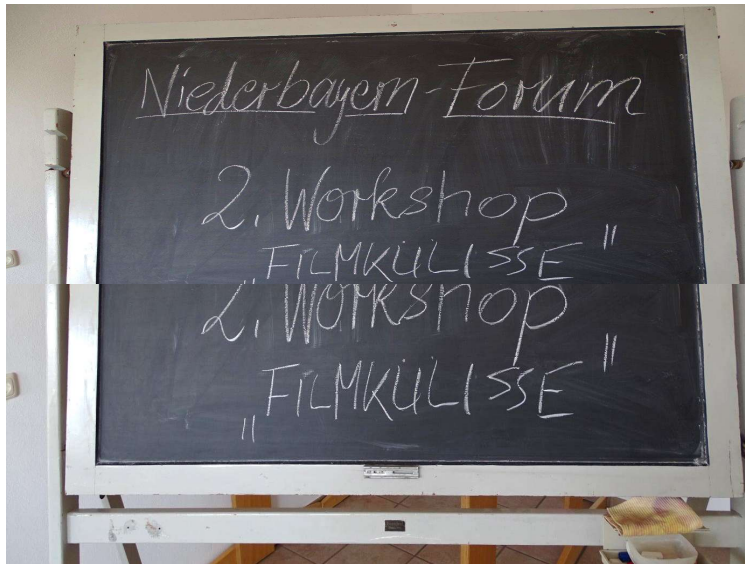 Niederbayern-Forum
2. Workshop
„FILMKÜLISSE"
2. Workshop
„FILMKÜLISSE"